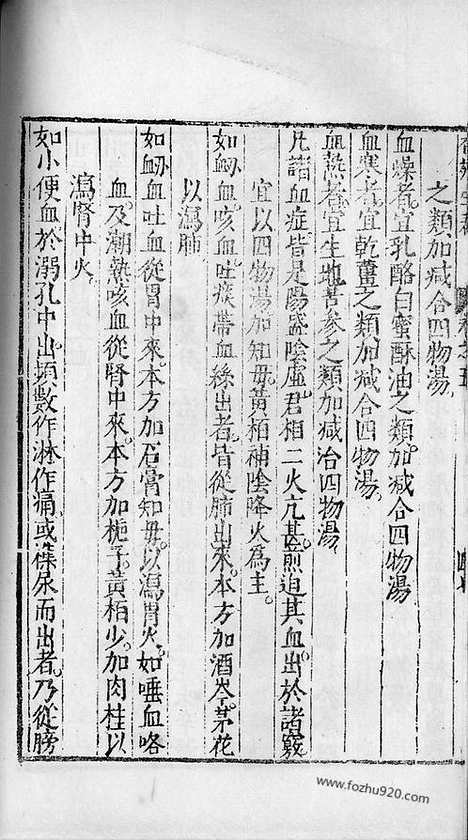 之類加减合四物湯
血燥者宜乳酪白蜜酥油之類加减合四物湯
血寒者宜乾薑之類加减合四物湯
血熱者宜生地苦參之類加减治四物湯
凡諸血症皆是陽盛陰虛君相二火亢甚煎迫其血出於諸竅
宜以四物湯加知毋黄栢補陰降火爲主
如衂血咳血吐痰帶血絲出者皆從肺出來本方加酒芩茅花
以瀉肺
如衂血吐血從胃中來本方加石膏知毋以瀉胃火如唾血咯
血及潮熱咳血從腎中來本方加梔子黄栢少加肉桂以
瀉腎中火
如小便血於溺孔中出頻數作淋作痛或雜尿而出者乃從膀
www.fozhu920.com